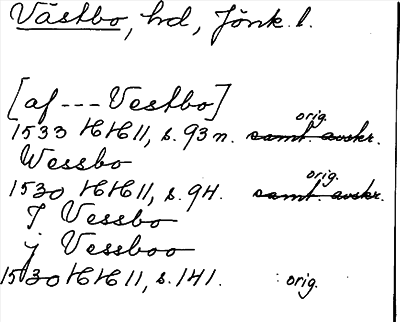 Västbo, hd, Jönk. l.
[af --- Vestbo]
orig.
1533 HH 11, s. 93 n. samt. avskr.
Wessbo
orig.
1530 HH 11, s. 94. samt. avskr.
J Vessbo
j Vessboo
1530 HH 11, s. 141. orig.